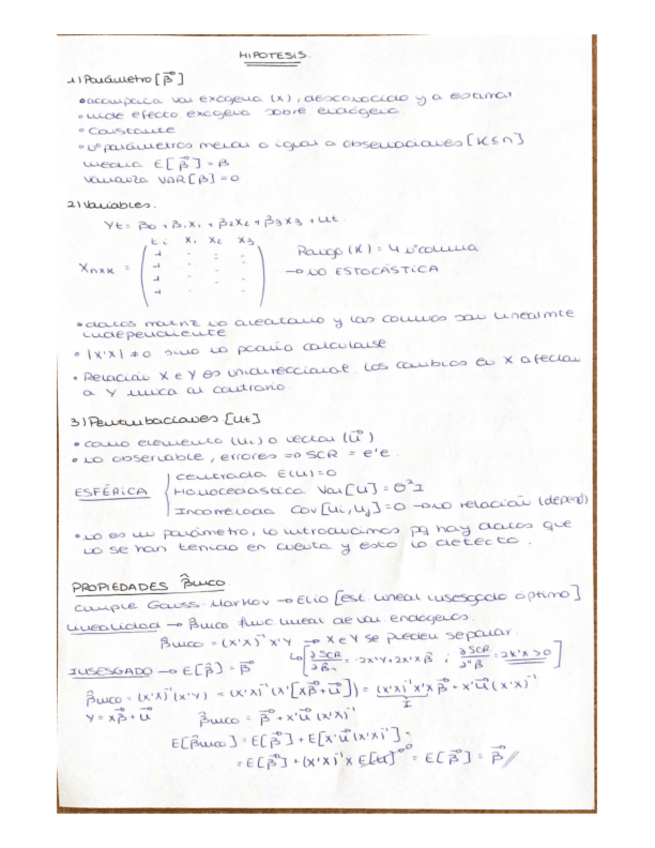 HIPOTESIS.
1) Parámetro [β⃗]
• acompaña var exógena (x), desconocido y a estimar
• mide efecto exógena sobre endógena
• Constante
• nº parámetros menor o igual a observaciones [K≤n]
media E[β⃗] = β
varianza VAR[β] = 0
2) Variables.
Yt = β0 + β1X1 + β2X2 + β3X3 + Ut.
t.i X1 X2 X3
Xnxk =
Rango (K) = 4 nº columna
→ NO ESTOCÁSTICA
• datos matriz no aleatorio y las columnas son linealmte
independiente
• |X'X| ≠ 0 sino no podría calcularse
• Relación X e Y es unidireccional. Los cambios en X afectan
a Y nunca al contrario.
3) Perturbaciones [Ut]
• como elemento (Ui) o vector (u⃗)
• no observable, errores => SCR = e'e
centrada E(u) = 0
ESFÉRICA Homocedastica Var[u] = σ²I
Incorrelada Cov[Ui, Uj] = 0 → no relación (depend)
• no es un parámetro, lo introducimos pq hay datos que
no se han tenido en cuenta y esto lo detecta.
PROPIEDADES β̂mco.
Cumple Gauss-Markov → ELIO [est. lineal insesgado óptimo]
Linealidad → β̂mco func lineal de var endógenas.
β̂mco = (X'X)⁻¹X'Y → X e Y se pueden separar.
INSESGADO → E[β̂] = β⃗ ↳ [∂SCR/∂β = -2X'Y + 2X'Xβ̂ ; ∂SCR/∂''β = 2X'X > 0]
β̂mco = (X'X)⁻¹(X'Y) = (X'X)⁻¹(X'[Xβ⃗+u⃗]) = (X'X)⁻¹X'Xβ⃗ + X'u⃗(X'X)⁻¹
I
Y = Xβ⃗ + u⃗ β̂mco = β⃗ + X'u⃗(X'X)⁻¹
E[β̂mco] = E[β⃗] + E[X'u⃗(X'X)⁻¹] =
= E[β⃗] + (X'X)⁻¹X E[u]⁰ = E[β⃗] = β⃗ //